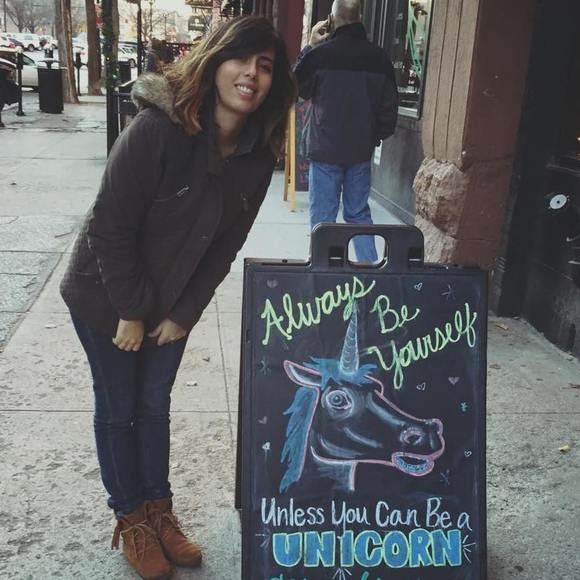 Always Be
Yourself
Unless You Can Be a
UNICORN